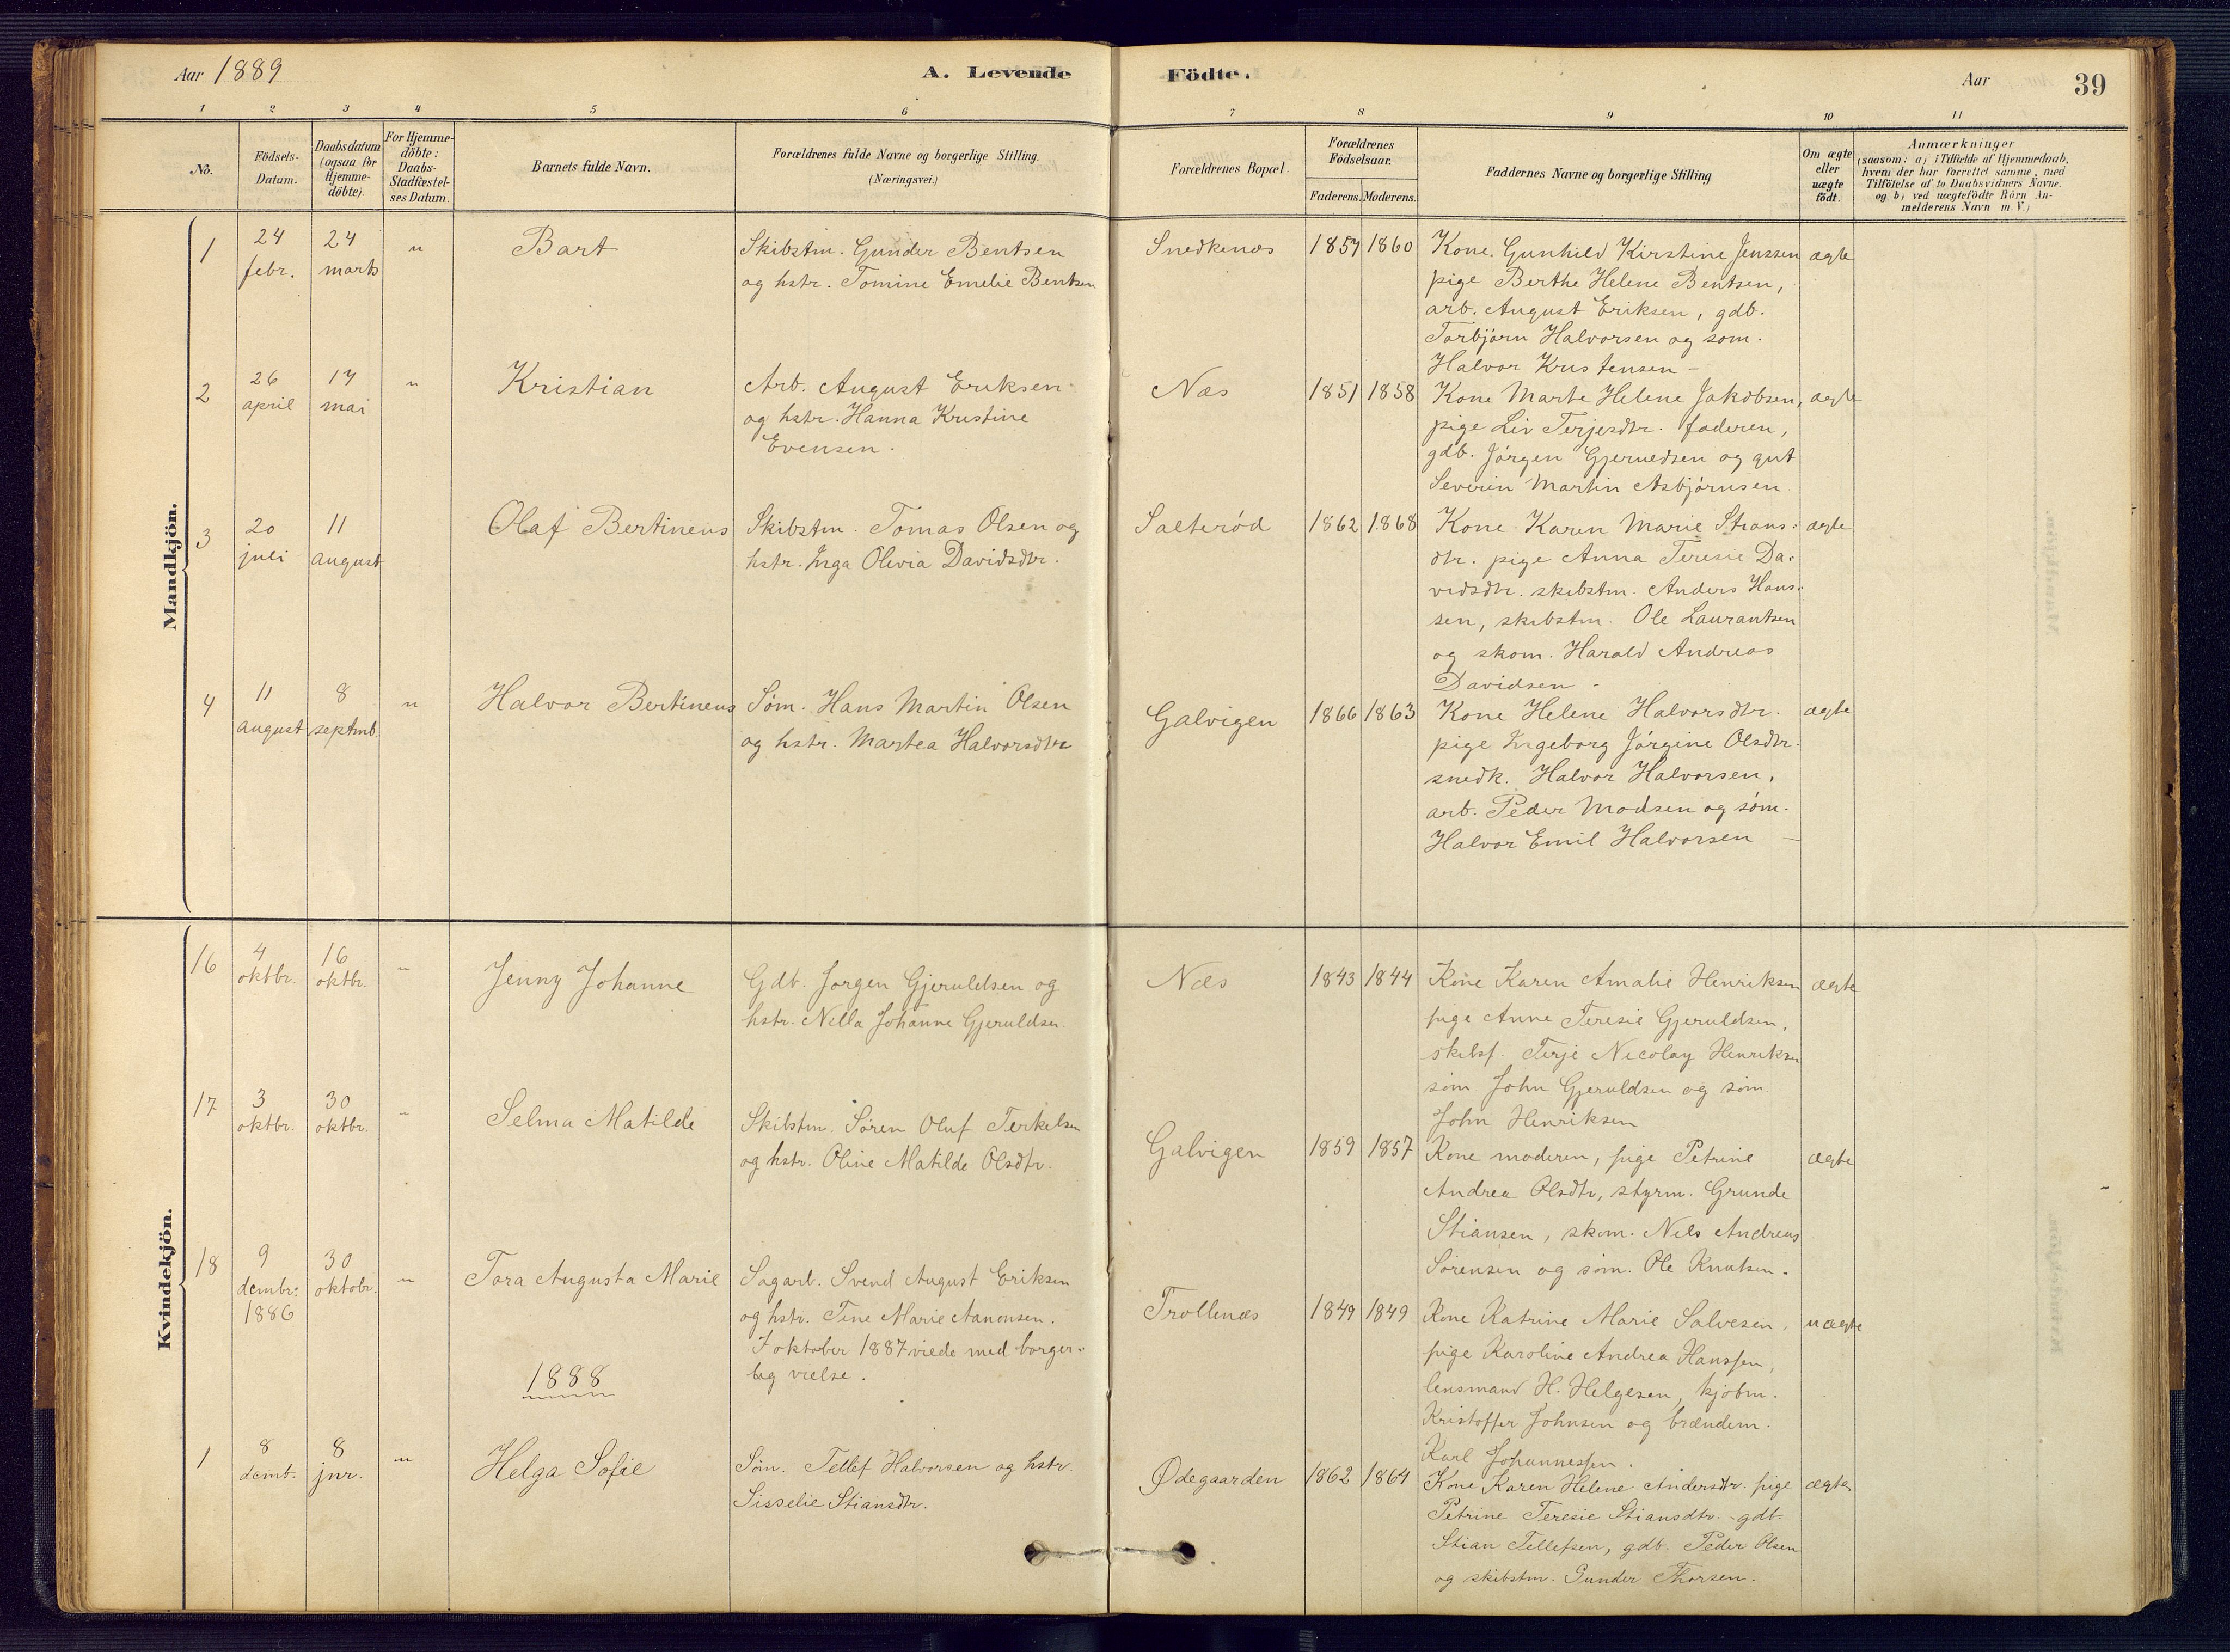 Aar 1889
A. Levende Födte.
Aar
39
1 2 3 4 5 6 7 8 9 10 11
No.
Födsels-
Datum.
Daabsdatum
(ogsaa for
Hjemme-
döbte).
For Hjemme-
döbte:
Daabs-
Stadfæstel-
ses Datum.
Barnets fulde Navn.
Forældrenes fulde Navne og borgerlige Stilling.
(Næringsvei.)
Forældrenes Bopæl.
Forældrenes
Födselsaar.
Faderens. Moderens.
Faddernes Navne og borgerlige Stilling
Om ægte
eller
uægte
födt.
Anmærkninger
(saasom: a) i Tilfælde af Hjemmedaab,
hvem der har forrettet samme, med
Tilföielse af to Daabsvidners Navne.
og b) ved uægtefödte Börn An-
melderens Navn m. V.)
Mandkjön.
1
24
febr.
24
marts
"
Bart
Skibstm. Gunder Bentsen
og hstr. Tomine Emelie Bentsen
Snedkenæs
1857 1860
Kone. Gunhild Kirstine Jenssen
pige Berthe Helene Bentsen,
arb. August Eriksen, gdb.
Torbjørn Halvorsen og søm.
Halvor Kristensen -
ægte
2
26
april
17
mai
"
Kristian
Arb. August Eriksen
og hstr. Hanna Kristine
Evensen.
Næs
1851 1858
Kone Marte Helene Jakobsen,
pige Liv Terjesdtr. faderen,
gdb. Jörgen Gjeruldsen og gut
Severin Martin Asbjörnsen.
ægte
3
20
juli
11
august
Olaf Bertinius
Skibstm. Tomas Olsen og
hstr. Inga Olevia Davidsdtr.
Salteröd
1862 1868
Kone Karen Marie Strans-
dtr. pige Anna Teresie Da-
vidsdtr. skibstm. Anders Hans-
sen, skibstm. Ole Laurantsen
og skom. Harald Andreas
Davidsen -
ægte
4
11
august
8
septmb.
"
Halvor Bertinius
Søm. Hans Martin Olsen
og hstr. Martea Halvorsdtr
Galvigen
1866 1863
Kone Helene Halvorsdtr.
pige Ingeborg Jörgine Olsdtr.
snedk. Halvor Halvorsen,
arb. Peder Madsen og søm.
Halvor Emil Halvorsen -
ægte
Kvindekjön.
16
4
oktbr.
16
oktbr.
"
Jenny Johanne
Gdb. Jørgen Gjeruldsen og
hstr. Nella Johanne Gjeruldsen
Næs
1843 1844
Kone Karen Amalie Henriksen
pige Anne Teresie Gjeruldsen,
skibsf. Terje Nicolay Henriksen
søm John Gjeruldsen og søm.
John Henriksen
ægte
17
3
oktbr.
30
oktbr.
"
Selma Matilde
Skibstm. Sören Oluf Terkelsen
og hstr. Oline Matilde Olsdtr.
Galvigen
1859 1857
Kone moderen, pige Petrine
Andrea Olsdtr, styrm. Grunde
Stiansen, skom. Nels Andreas
Sörensen og søm. Ole Knutsen.
ægte
18
9
dembr.
1886
30
oktobr.
"
Tora Augusta Marie
Sagarb. Svend August Eriksen
og hstr. Tine Marie Aanonsen.
I oktober 1887 viede med borger-
lig vielse.
Trollenæs
1849 1849
Kone Katrine Marie Salvesen,
pige Karoline Andrea Hanssen,
lensmand H. Helgesen, kjöbm.
Kristoffer Johnsen og brændem.
Karl Johannessen.
uægte
1888
1
8
demb.
8
jnr.
"
Helga Sofie
Søm. Tellef Halvorsen og hstr.
Sisselie Stiansdtr.
Ødegaarden
1862 1864
Kone Karen Helene Andersdtr. pige
Petrine Teresie Stiansdtr. gdb.
Stian Tellefsen, gdb. Peder Olsen
og skibstm. Gunder Thorsen.
ægte